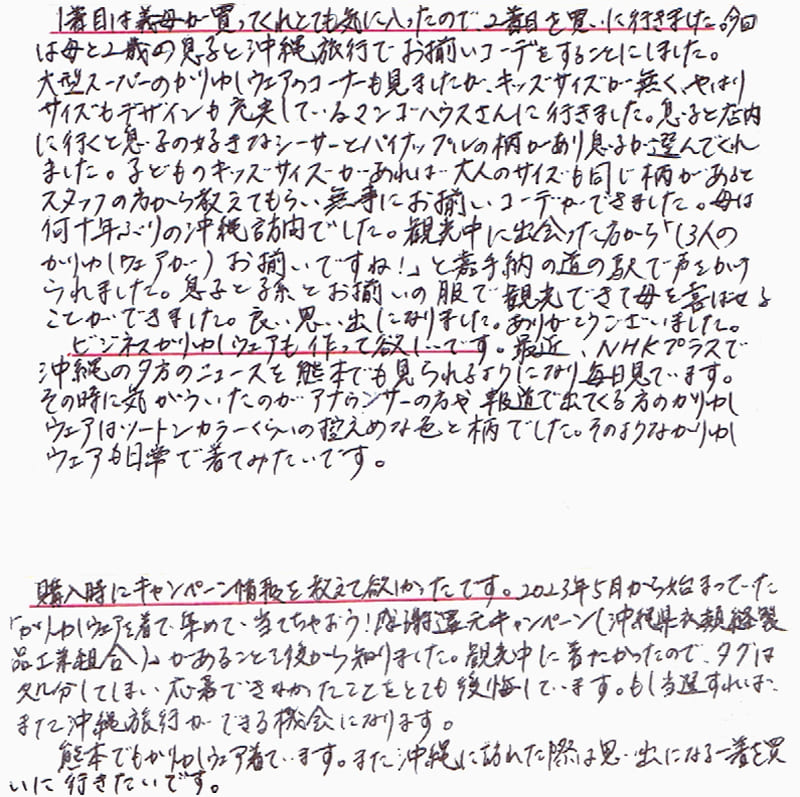 1着目は義母が買ってくれとても気に入ったので、2着目を買いに行きました。今回
は母と2歳の息子と沖縄旅行でお揃いコーデをすることにしました。
大型スーパーのかりゆしウェアのコーナーも見ましたが、キッズサイズが無く、やはり
サイズもデザインも充実しているマンゴハウスさんに行きました。息子と店内
に行くと息子の好きなシーサーとパイナップルの柄があり息子が選んでくれ
ました。子どものキッズサイズがあれば大人のサイズも同じ柄があると
スタッフの方から教えてもらい無事にお揃いコーデができました。母は
何十年ぶりの沖縄訪問でした。観光中に出会った方から「(3人の
かりゆしウェアが)お揃いですね!」と嘉手納の道の駅で声をかけ
られました。息子と孫とお揃いの服で観光できて母を喜ばせる
ことができました。良い思い出になりました。ありがとうございました。
ビジネスかりゆしウェアも作って欲しいです。最近、NHKプラスで
沖縄の夕方のニュースを熊本でも見られるようになり毎日見ています。
その時に気がついたのがアナウンサーの方や報道で出てくる方のかりゆし
ウェアはツートンカラーくらいの控えめな色と柄でした。そのようなかりゆし
ウェアも日常で着てみたいです。
購入時にキャンペーン情報を教えて欲しかったです。2023年5月から始まっていた
「かりゆしウェアを着て、集めて、当てちゃおう!感謝還元キャンペーン(沖縄県衣類縫製
品工業組合)」があることを後から知りました。観光中に着たかったので、タグは
処分してしまい応募できなかったことをとても後悔しています。もし当選すれば、
また沖縄旅行ができる機会になります。
熊本でもかりゆしウェア着ています。また沖縄に訪れた際は思い出になる一着を買
いに行きたいです。